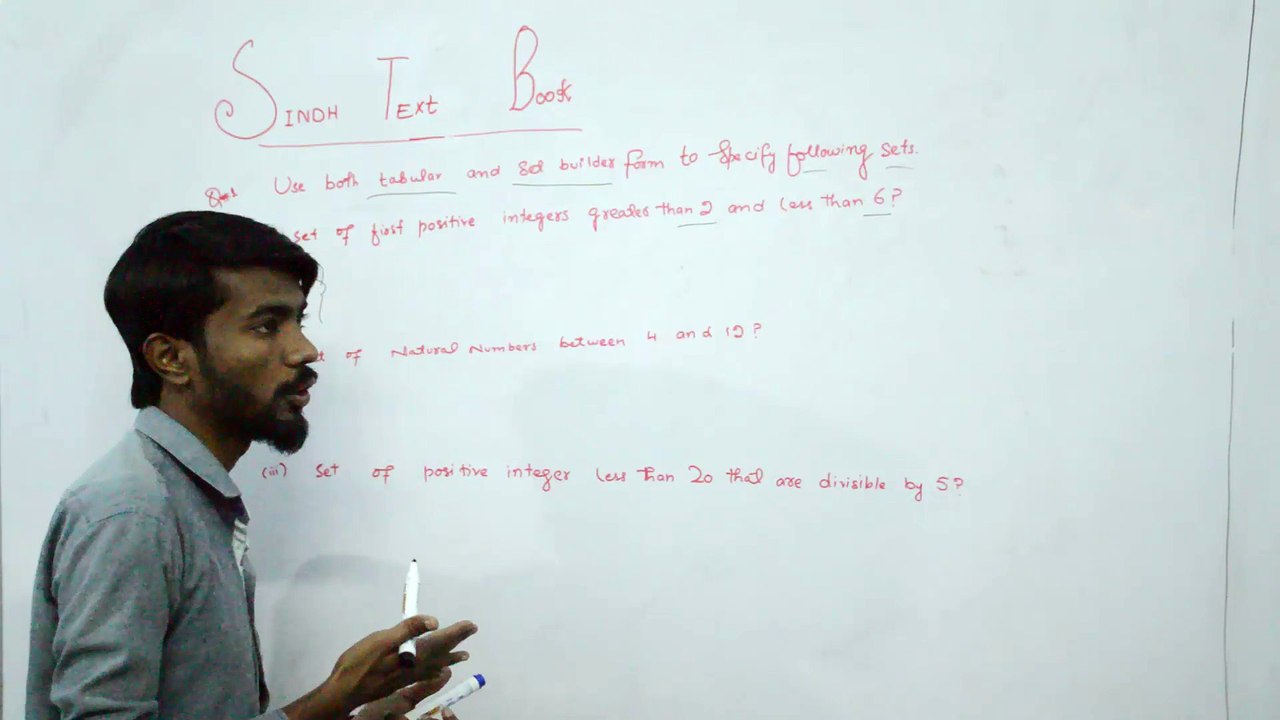 SINDH TEXt Book
Use both tabular and set builder form to specify following sets.
set of first positive integers greater than 2 and less than 6?
of Natural Numbers between 4 and 12?
(iii) set of positive integer less than 20 that are divisible by 5?